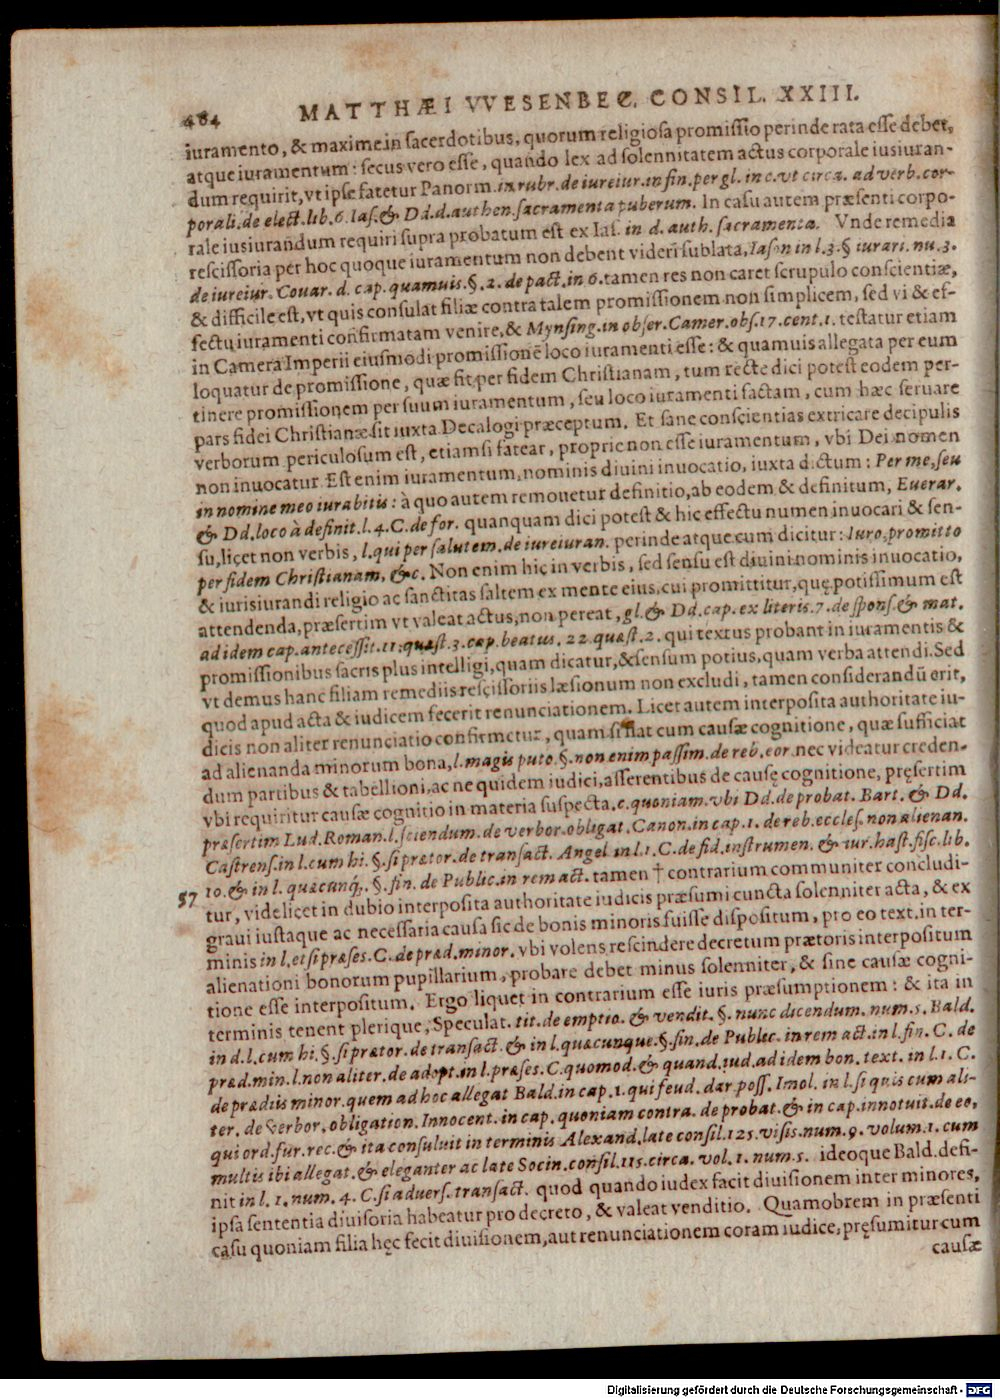 484 MATTHÆI VVESENBEC. CONSIL. XXIII.
iuramento, & maxime in sacerdotibus, quorum religiosa promissio perinde rata esse debet,
atque iuramentum: secus vero esse, quando lex ad solennitatem actus corporale iusiuran-
dum requirit, vt ipse fatetur Panorm. in rubr. de iureiur. in fin. per gl. in c. vt circa. ad verb. cor-
porali. de elect. lib. 6. Ias. & Dd. d. authen. sacramenta puberum. In casu autem præsenti corpo-
rale iusiurandum requiri supra probatum est ex Ias. in d. auth. sacramenta. Vnde remedia
rescissoria per hoc quoque iuramentum non debent videri sublata, Iason in l. 3. § iurari. nu. 3.
de iureiur. Couar. d. cap. quamuis. §. 2. de pact. in 6. tamen res non caret scrupulo conscientiæ,
& difficile est, vt quis consulat filiæ contra talem promissionem non simplicem, sed vi & ef-
fectu iuramenti confirmatam venire, & Mynsing. in obser. Camer. obs. 17. cent. 1. testatur etiam
in Camera Imperii eiusmodi promissionē loco iuramenti esse: & quamuis allegata per eum
loquatur de promissione, quæ fit per fidem Christianam, tum recte dici potest eodem per-
tinere promissionem per suum iuramentum, seu loco iuramenti factam, cum hæc seruare
pars fidei Christianæ sit iuxta Decalogi præceptum. Et sane conscientias extricare decipulis
verborum periculosum est, etiamsi fatear, proprie non esse iuramentum, vbi Dei nomen
non inuocatur. Est enim iuramentum, nominis diuini inuocatio, iuxta dictum: Per me, seu
in nomine meo iurabitis: à quo autem remouetur definitio, ab eodem & definitum, Euerar.
& Dd. loco à definit. l. 4. C. de for. quanquam dici potest & hic effectu numen inuocari & sen-
su, licet non verbis, l. qui per salutem. de iureiuran. perinde atque cum dicitur: Iuro, promitto
per fidem Christianam, &c. Non enim hic in verbis, sed sensu est diuini nominis inuocatio,
& iurisiurandi religio ac sanctitas saltem ex mente eius, cui promittitur, quę potissimum est
attendenda, præsertim vt valeat actus, non pereat, gl. & Dd. cap. ex literis. 7. de spons. & mat.
ad idem cap. antecessit. 11. quæst. 3. cap. beatus. 22. quæst. 2. qui textus probant in iuramentis &
promissionibus sacris plus intelligi, quam dicatur, & sensum potius, quam verba attendi. Sed
vt demus hanc filiam remediis rescissoriis læsionum non excludi, tamen considerandū erit,
quod apud acta & iudicem fecerit renunciationem. Licet autem interposita authoritate iu-
dicis non aliter renunciatio confirmetur, quam si fiat cum causæ cognitione, quæ sufficiat
ad alienanda minorum bona, l. magis puto. §. non enim passim. de reb. eor. nec videatur creden-
dum partibus & tabellioni, ac ne quidem iudici, asserentibus de causę cognitione, pręsertim
vbi requiritur causæ cognitio in materia suspecta. c. quoniam. vbi Dd. de probat. Bart. & Dd.
præsertim Lud. Roman. l. sciendum. de verbor. obligat. Canon. in cap. 1. de reb. eccles. non alienan.
Castrens. in l. cum hi. §. si prætor. de transact. Angel in l. 1. C. de fid. instrumen. & iur. hast. fisc. lib.
57 10. & in l. quæcunq;. §. fin. de Public. in rem act. tamen † contrarium communiter concludi-
tur, videlicet in dubio interposita authoritate iudicis præsumi cuncta solenniter acta, & ex
graui iustaque ac necessaria causa sic de bonis minoris fuisse dispositum, pro eo text. in ter-
minis in l. et si præses. C. de præd. minor. vbi volens rescindere decretum prætoris interpositum
alienationi bonorum pupillarium, probare debet minus solenniter, & sine causæ cogni-
tione esse interpositum. Ergo liquet in contrarium esse iuris præsumptionem: & ita in
terminis tenent plerique, Speculat. tit. de emptio. & vendit. §. nunc dicendum. num. 5. Bald.
in d. l. cum hi. §. si prætor. de transact. & in l. quæcunque. §. fin. de Public. in rem act. in l. fin. C. de
præd. min. l. non aliter. de adopt. in l. præses. C. quomod. & quand. iud. ad idem bon. text. in l. 1. C.
de prædiis minor. quem ad hoc allegat Bald. in cap. 1. qui feud. dar. poss. Imol. in l. si quis cum ali-
ter. de verbor. obligation. Innocent. in cap. quoniam contra. de probat. & in cap. innotuit. de eo,
qui ord. fur. rec. & ita consuluit in terminis Alexand. late consil. 125. visis. num. 9. volum. 1. cum
multis ibi allegat. & eleganter ac late Socin. consil. 115. circa. vol. 1. num. 5. ideoque Bald. defi-
nit in l. 1. num. 4. C. si aduers. transact. quod quando iudex facit diuisionem inter minores,
ipsa sententia diuisoria habeatur pro decreto, & valeat venditio. Quamobrem in præsenti
casu quoniam filia hęc fecit diuisionem, aut renunciationem coram iudice, pręsumitur cum
causæ
Digitalisierung gefördert durch die Deutsche Forschungsgemeinschaft - DFG